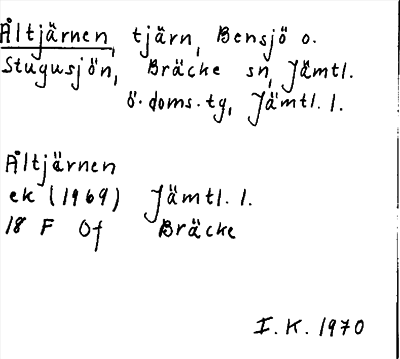 Åltjärnen, tjärn, Bensjö o.
Stugusjön, Bräcke sn, Jämtl.
ö. doms. tg, Jämtl. l.
Åltjärnen
ek (1969) Jämtl. l.
18 F Of Bräcke
I. K. 1970